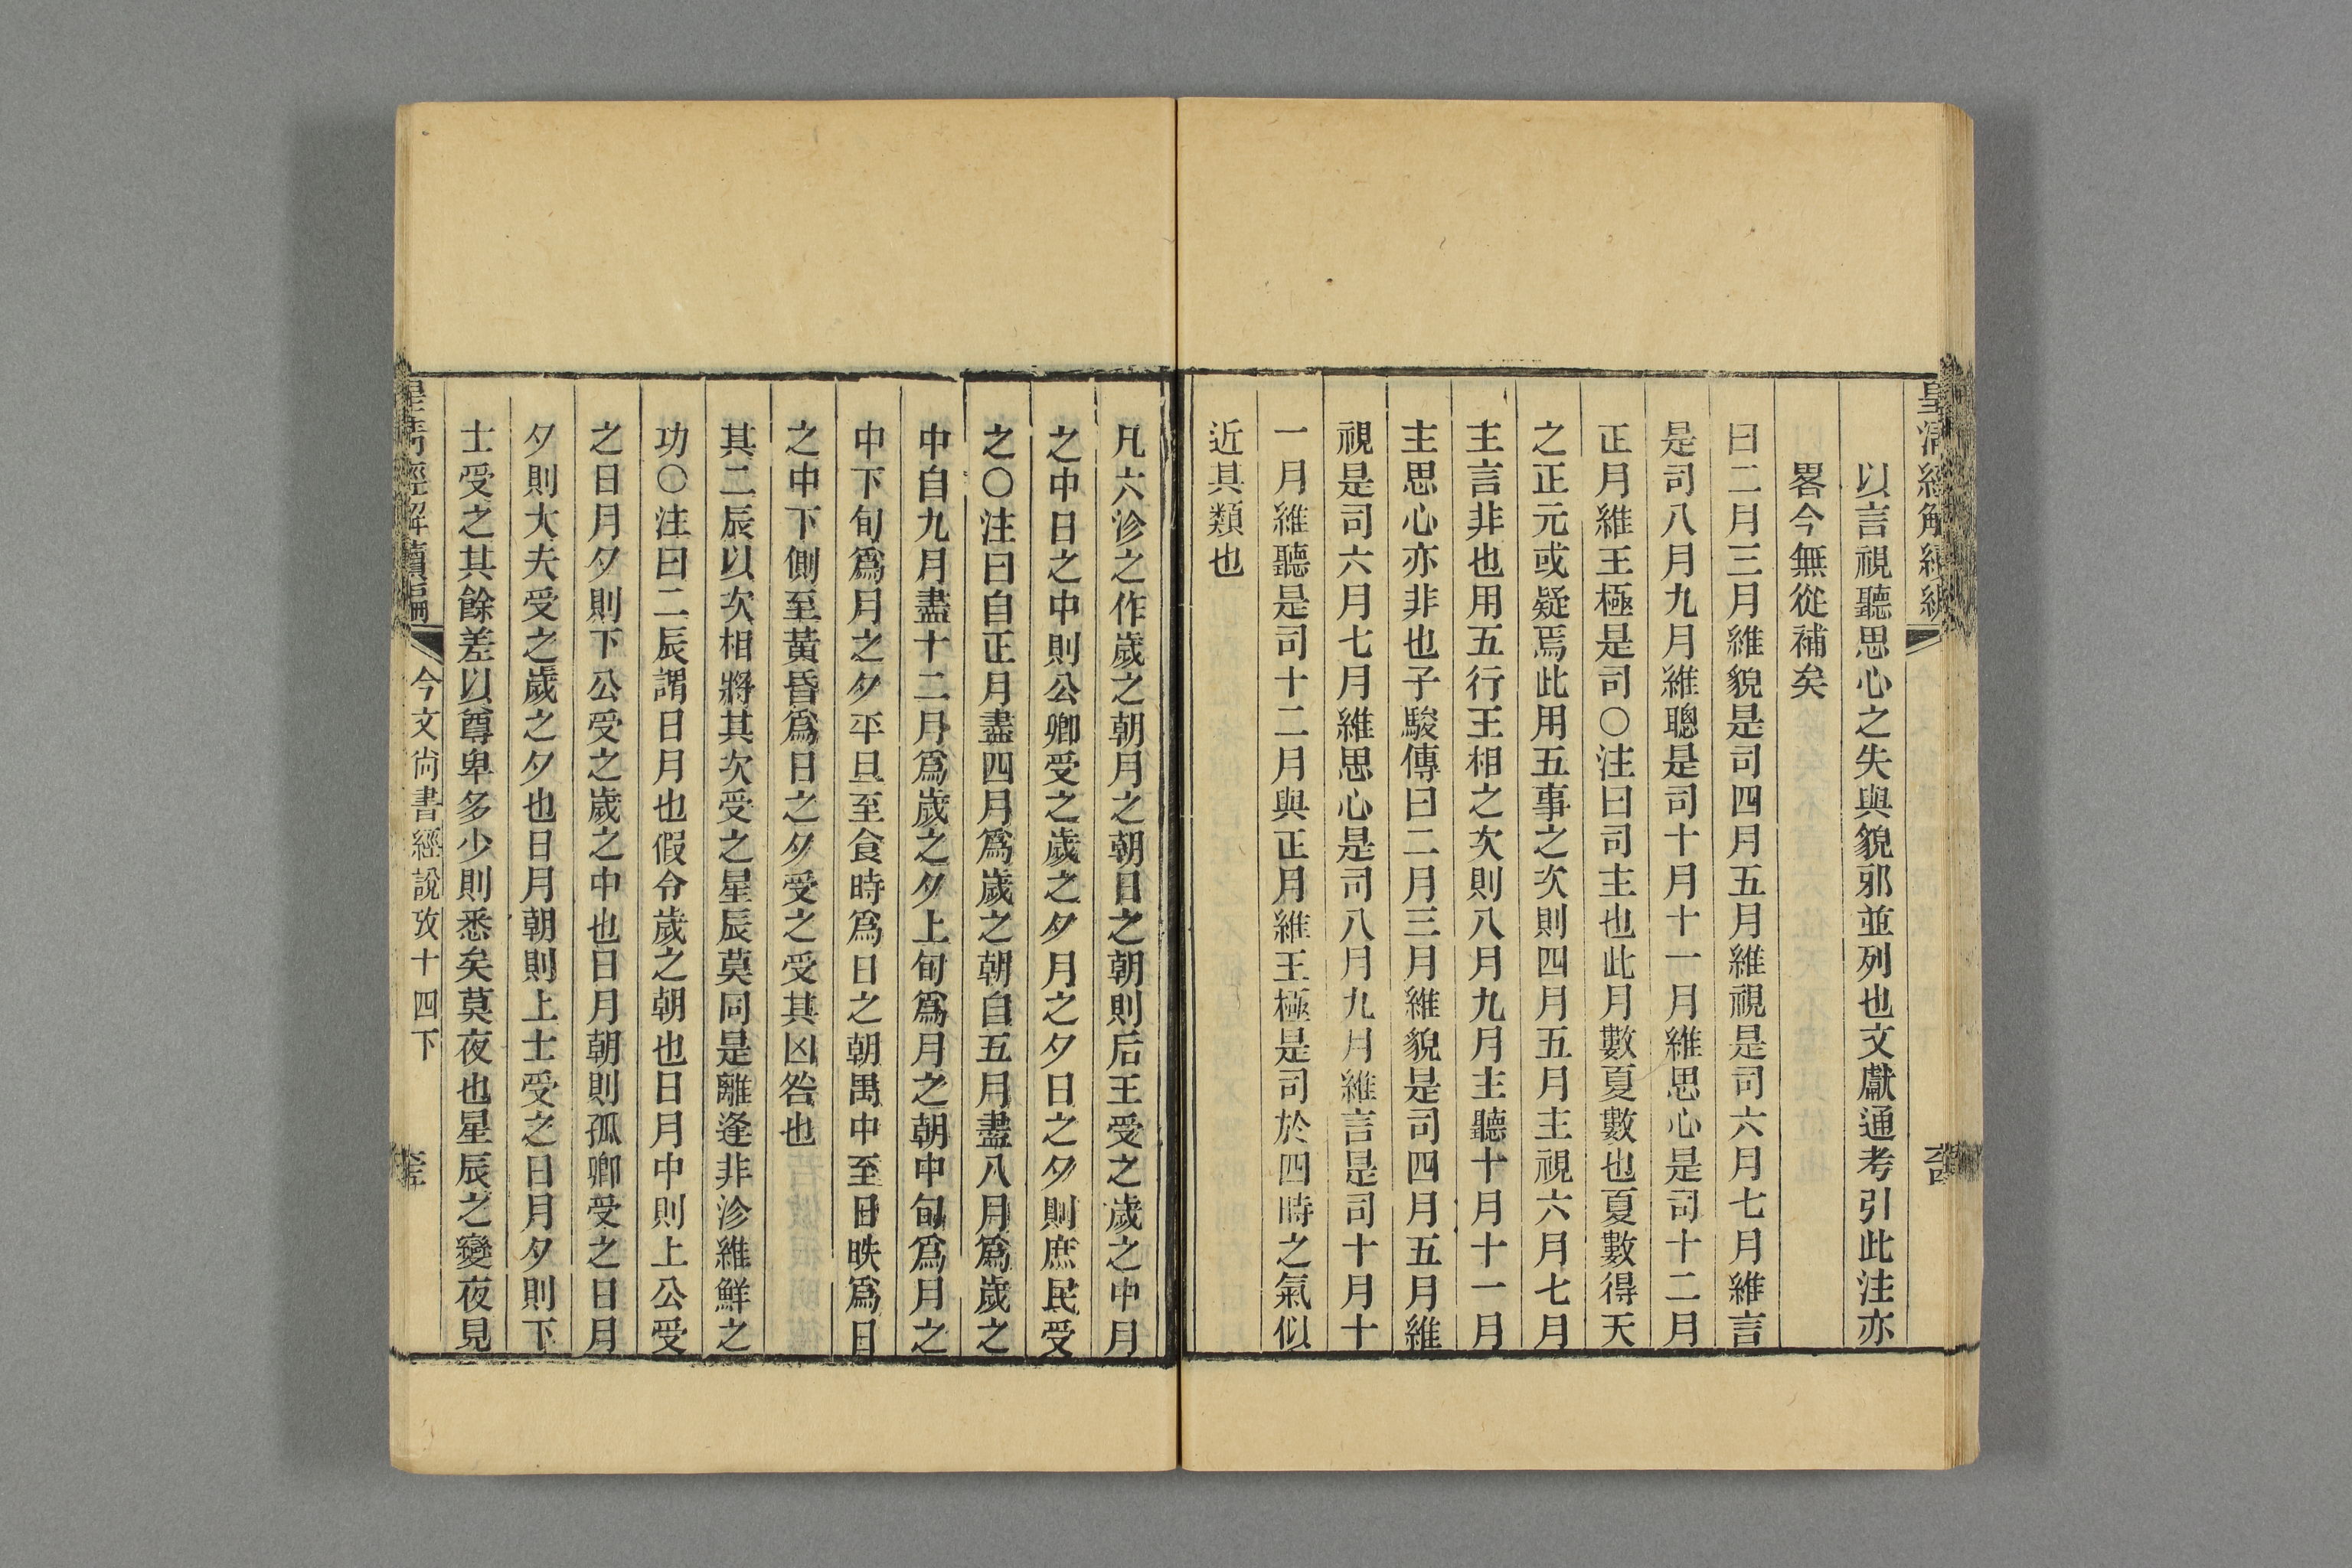 皇清經解續編
以言視聽思心之失與貌邪並列也文獻通考引此注亦
畧今無從補矣
曰二月三月維貌是司四月五月維視是司六月七月維言
是司八月九月維聰是司十月十一月維思心是司十二月
正月維王極是司○注曰司主也此月數夏數也夏數得天
之正元或疑焉此用五事之次則四月五月主視六月七月
主言非也用五行王相之次則八月九月主聽十月十一月
主思心亦非也子駿傳曰二月三月維貌是司四月五月維
視是司六月七月維思心是司八月九月維言是司十月十
一月維聽是司十二月與正月維王極是司於四時之氣似
近其類也
凡六沴之作歲之朝月之朝日之朝則后王受之歲之中月
之中日之中則公卿受之歲之夕月之夕日之夕則庶民受
之○注曰自正月盡四月爲歲之朝自五月盡八月爲歲之
中自九月盡十二月爲歲之夕上旬爲月之朝中旬爲月之
中下旬爲月之夕平旦至食時爲日之朝禺中至日昳爲日
之中下側至黃昏爲日之夕受之受其凶咎也
其二辰以次相將其次受之星辰莫同是離逢非沴維鮮之
功○注曰二辰謂日月也假令歲之朝也日月中則上公受
之日月夕則下公受之歲之中也日月朝則孤卿受之日月
夕則大夫受之歲之夕也日月朝則上士受之日月夕則下
士受之其餘差以尊卑多少則悉矣莫夜也星辰之變夜見
皇清經解續編
今文尚書經說攷十四下